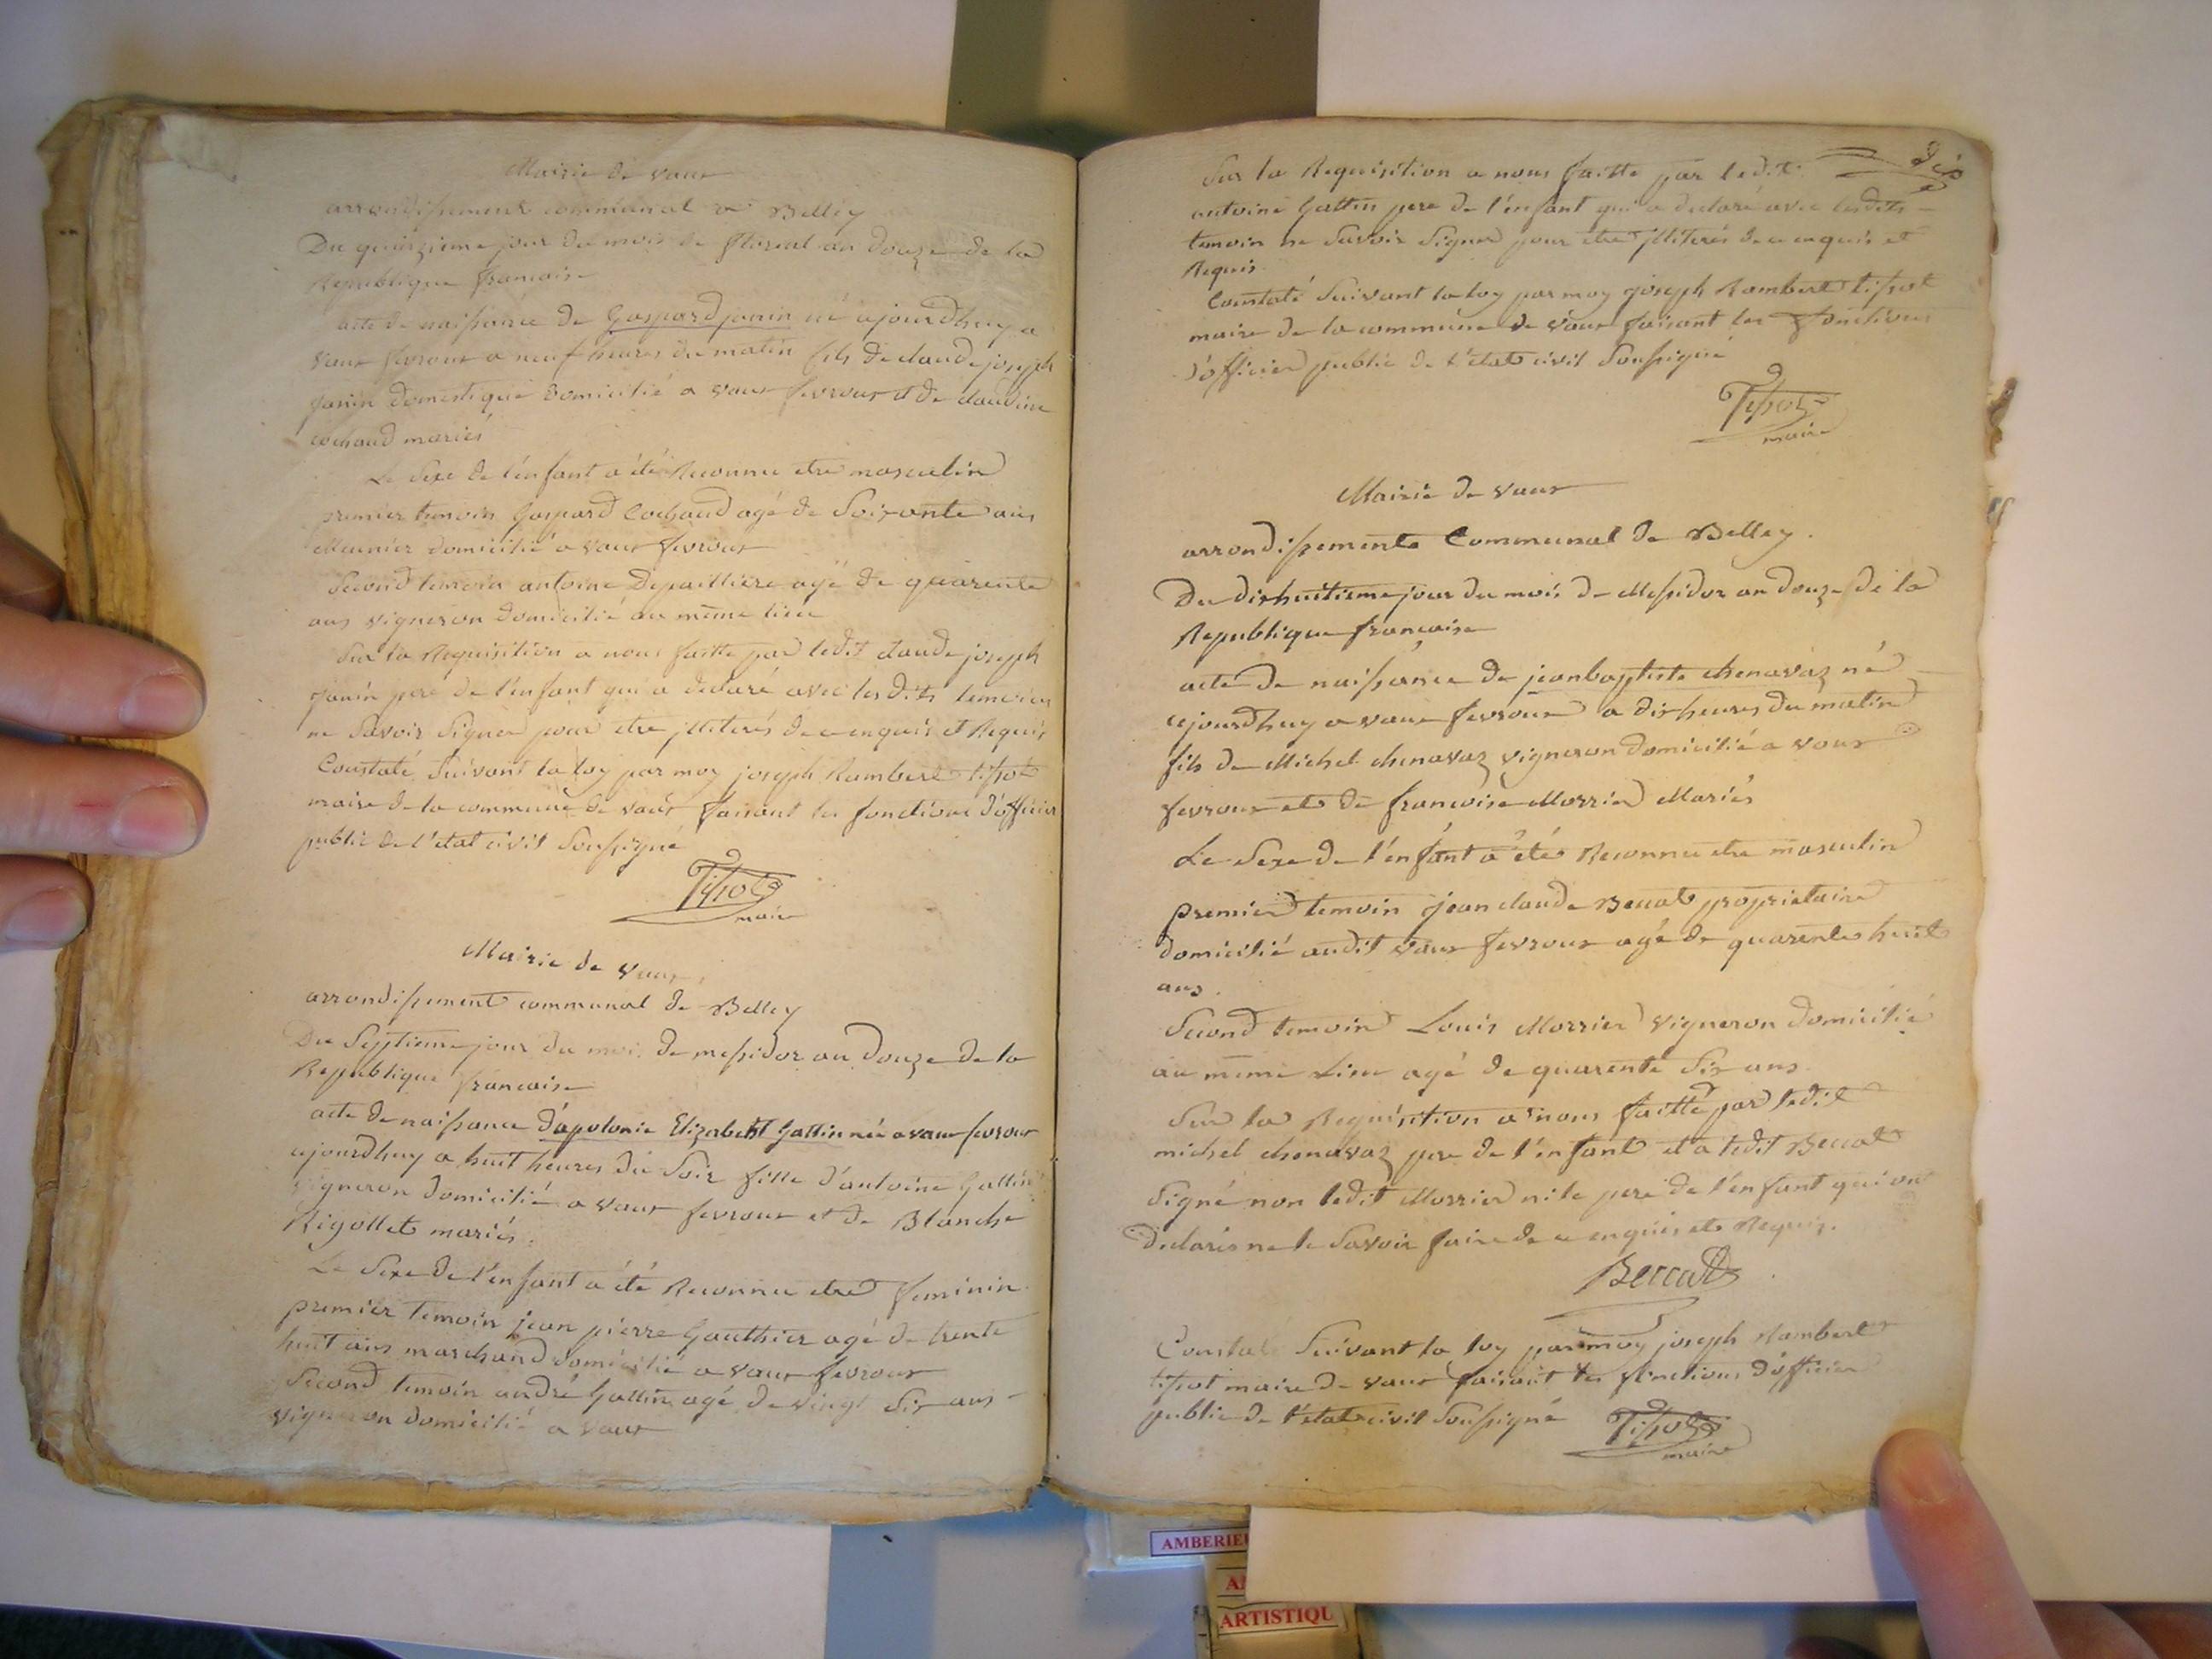 Mairie de vaux
arrondissement communal de Belley
Du quinzieme jour du mois de floreal an douze de la
Republique francaise
acte de naissance de Gaspard janin né ajourdhuy a
vaux fevroux a neuf heures du matin fils de claude joseph
janin domestique domicilié a vaux fevroux et de claudine
cochaud mariés
Le Sexe de l'enfant a été Reconnu etre masculin
premier temoin Gaspard Cochaud agé de Soixante ans
Meunier domicilié a vaux fevroux
Second temoin antoine Depailliere agé de quarente
ans vigneron domicilié au même lieu
Sur la Requisition a nous faitte par ledit claude joseph
janin pere de l'enfant qui a declaré avec les dits temoins
ne Savoir Signer pour etre jlliterés de ce enquis et Requis
Constaté Suivant la loy par moy joseph Rambert tissot
maire de la commune de vaux faisant les fonctions d'officier
public de l'etat civil Soussigné
Tissot
maire
Mairie de vaux
arrondissement communal de Belley
Du Septieme jour du mois de messidor an douze de la
Republique francaise
acte de naissance d'apolonie Elizabeht Gattin née a vaux fevroux
ajourdhuy a huit heures du Soir fille d'antoine Gattin
vigneron domicilié a vaux fevroux et de Blanche
Rigollet mariés.
Le Sexe de l'enfant a été Reconnu etre feminin
premier temoin jean pierre Gauthier agé de trente
huit ans marchand domicilié a vaux fevroux
Second temoin andré Gattin agé de vingt Six ans
vigneron domicilié a vaux
Sur la Requisition a nous faitte par ledit
antoine Gattin pere de l'enfant qui a declaré avec lesdits
temoin ne Savoir Signer pour etre jlliterés de ce enquis et
Requis
Constaté Suivant la loy par moy joseph Rambert tissot
maire de la commune de vaux faisant les fonctions
d'officier public de l'etat civil Soussigné
Tissot
maire
Mairie de vaux
arrondissement Communal de Belley.
Du dixhuitieme jour du mois de Messidor an douze de la
Republique francaise
acte de naissance de jeanbaptiste chenavaz né
ajourdhuy a vaux fevroux a dix heures du matin
fils de Michel chenavaz vigneron domicilié a vaux
fevroux et de francoise Morrier Mariés
Le Sexe de l'enfant a été Reconnu etre masculin
premier temoin jean claude Beccat proprietaire
domicilié audit vaux fevroux agé de quarente huit
ans.
Second temoin Louis Morrier vigneron domicilié
au même Lieu agé de quarente Six ans.
Sur la Requisition a nous faitte par ledit
michel chenavaz pere de l'enfant et a ledit Beccat
Signé non ledit Morrier ni le pere de l'enfant qui ont
declarés ne le Savoir faire de ce enquis et Requis.
Beccat
Constaté Suivant la loy par moy joseph Rambert
tissot maire de vaux faisant les fonctions d'officier
public de l'etat civil Soussigné
Tissot
maire
AMBERIEU
ARTISTIQU